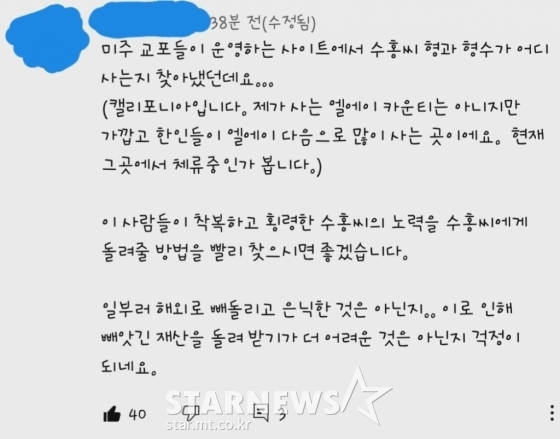 38분 전(수정됨)
미주 교포들이 운영하는 사이트에서 수홍씨 형과 형수가 어디
사는지 찾아냈던데요,,,
(캘리포니아입니다. 제가 사는 엘에이 카운티는 아니지만
가깝고 한인들이 엘에이 다음으로 많이 사는 곳이에요. 현재
그곳에서 체류중인가 봅니다.)
이 사람들이 착복하고 횡령한 수홍씨의 노력을 수홍씨에게
돌려줄 방법을 빨리 찾으시면 좋겠습니다.
일부러 해외로 빼돌리고 은닉한 것은 아닌지,, 이로 인해
빼앗긴 재산을 돌려 받기가 더 어려운 것은 아닌지 걱정이
되네요.
STARNEWS
star.mt.co.kr
40
3